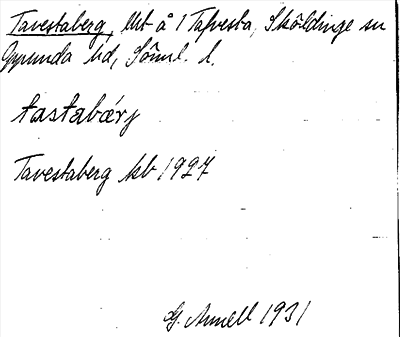 Tavestaberg, lht å 1 Tafvesta, Sköldinge sn
Oppunda hd, Söml. l.
tastabærj
Tavestaberg kb 1927
G. Annell 1931